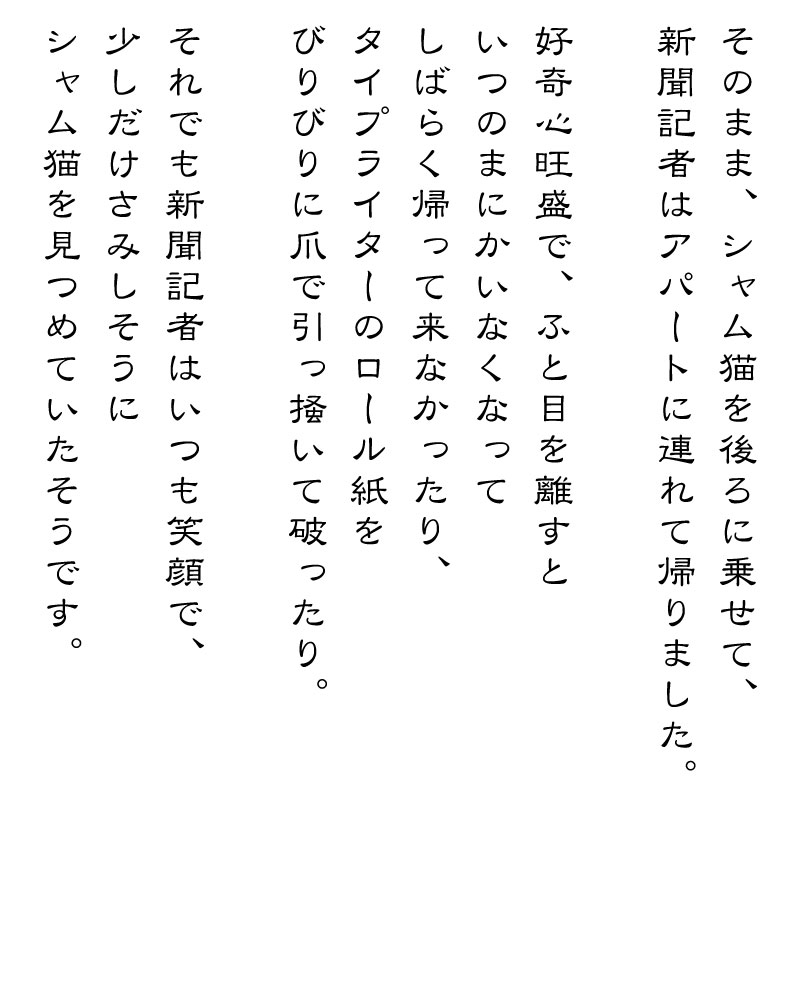 そのまま、シャム猫を後ろに乗せて、
新聞記者はアパートに連れて帰りました。
好奇心旺盛で、ふと目を離すと
いつのまにかいなくなって
しばらく帰って来なかったり、
タイプライターのロール紙を
びりびりに爪で引っ掻いて破ったり。
それでも新聞記者はいつも笑顔で、
少しだけさみしそうに
シャム猫を見つめていたそうです。